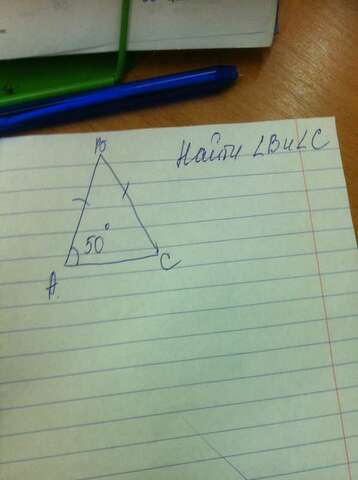 B
Найти ∠B и ∠C
50°
A.
C